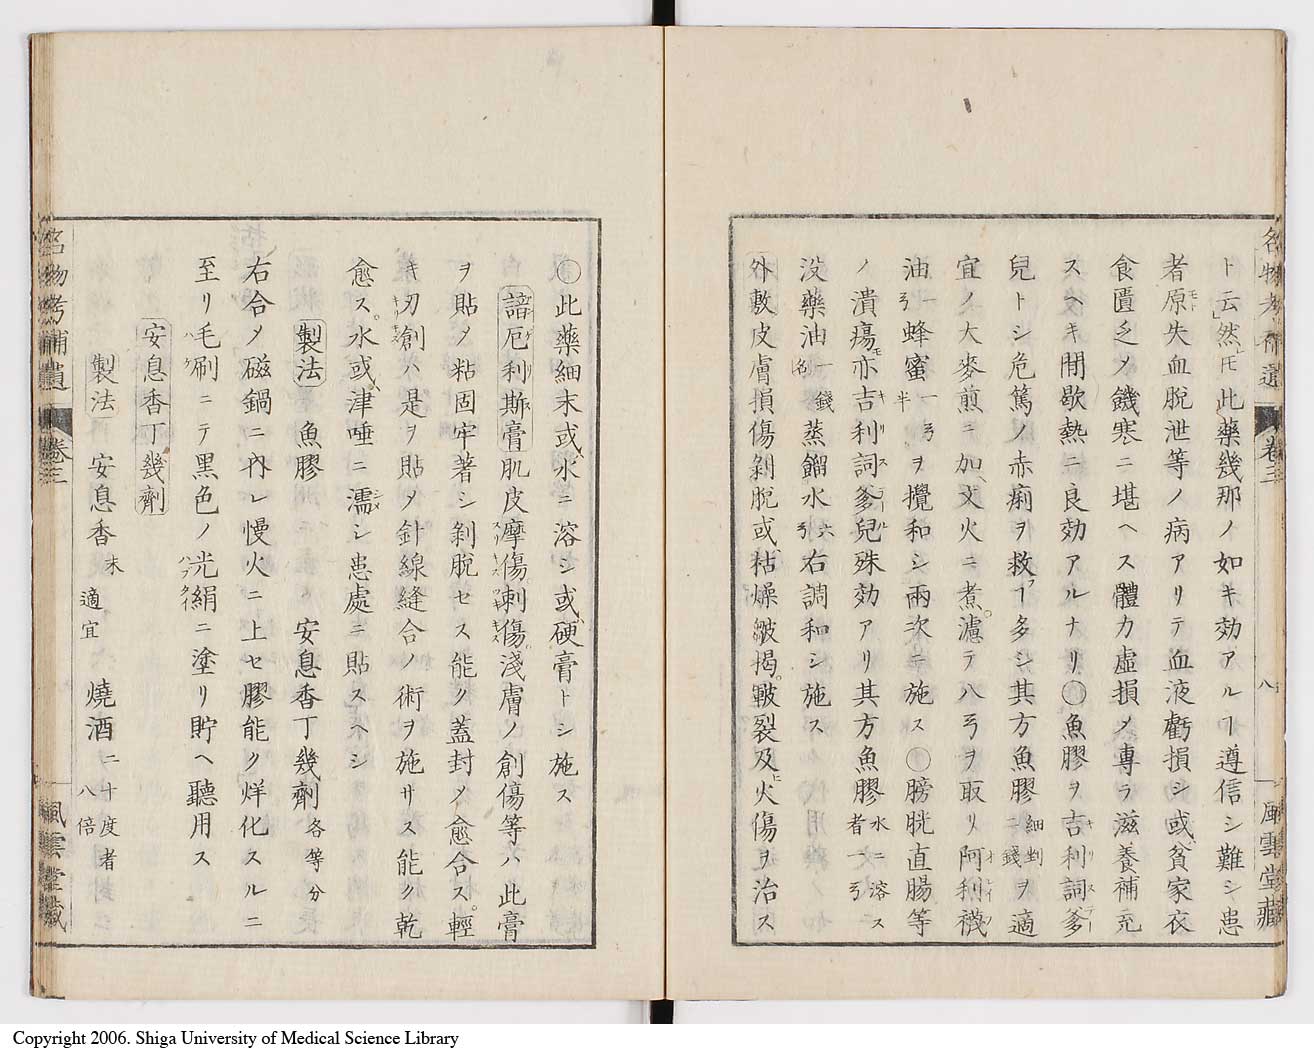 名物考補遺 卷三 八 風雲堂藏
ト云然𪜈此藥幾那ノ如キ効アルヿ遵信シ難シ患
者原失血脫泄等ノ病アリテ血液虧損シ或貧家衣
食匱乏ノ饑寒ニ堪ヘス體力虛損メ專ラ滋養補充
スヘキ間歇熱ニ良効アルナリ○魚膠ヲ吉利詞爹
兒トシ危篤ノ赤痢ヲ救フヿ多シ其方魚膠細剉二錢ヲ適
宜ノ大麥煎ニ加ヘ文火ニ煮濾テ八弓ヲ取リ阿利襪
油一弓蜂蜜一弓半ヲ攪和シ兩次ニ施ス○膀胱直腸等
ノ潰瘍亦吉利詞爹兒殊効アリ其方魚膠水ニ溶ス者一弓
沒藥油一錢蒸餾水六弓右調和シ施ス
外敷皮膚損傷剝脫或枯燥皺揭皸裂及火傷ヲ治ス
○此藥細末或水ニ溶シ或硬膏トシ施ス
諳厄利斯膏肌皮摩傷刺傷淺膚ノ創傷等ハ此膏
ヲ貼メ粘固牢著シ剝脫セス能ク蓋封メ愈合ス輕
キ刃創ハ是ヲ貼メ針線縫合ノ術ヲ施サス能ク乾
愈ス水或津唾ニ濡シ患處ニ貼スヘシ
製法 魚膠 安息香丁幾劑各等分
右合メ磁鍋ニ內レ慢火ニ上セ膠能ク烊化スルニ
至リ毛刷ニテ黑色ノ光絹ニ塗リ貯ヘ聽用ス
安息香丁幾劑
製法 安息香末適宜 燒酒二十度者八倍
名物考補遺 卷三 風雲堂藏
Copyright 2006. Shiga University of Medical Science Library